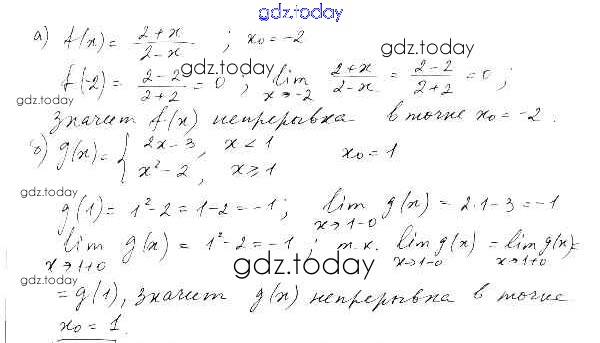 gdz.today
а) f(x) = (2+x)/(2-x) ; x₀ = -2
f(-2) = (2-2)/(2+2) = 0 ; lim x→-2 (2+x)/(2-x) = (2-2)/(2+2) = 0 ;
gdz.today
gdz.today
значит f(x) непрерывна в точке x₀ = -2.
б) g(x) = { 2x-3, x < 1
x²-2, x ⩾ 1
x₀ = 1
gdz.today
g(1) = 1²-2 = 1-2 = -1 ; lim x→1-0 g(x) = 2·1-3 = -1
lim x→1+0 g(x) = 1²-2 = -1 ; т.к. lim x→1-0 g(x) = lim x→1+0 g(x) =
gdz.today
gdz.today
= g(1), значит g(x) непрерывна в точке
x₀ = 1.